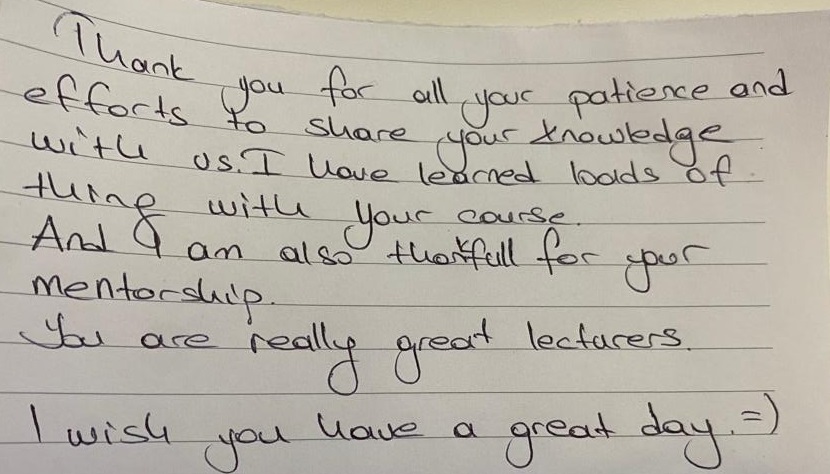 Thank you for all your patience and
efforts to share your knowledge
with us. I have learned loads of
thing with your course.
And I am also thankfull for your
mentorship.
You are really great lecturers.
I wish you have a great day. =)